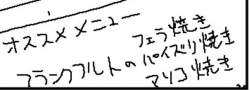 オススメメニュー
フェラ焼き
フランクフルトのパイズリ焼き
マンコ焼き